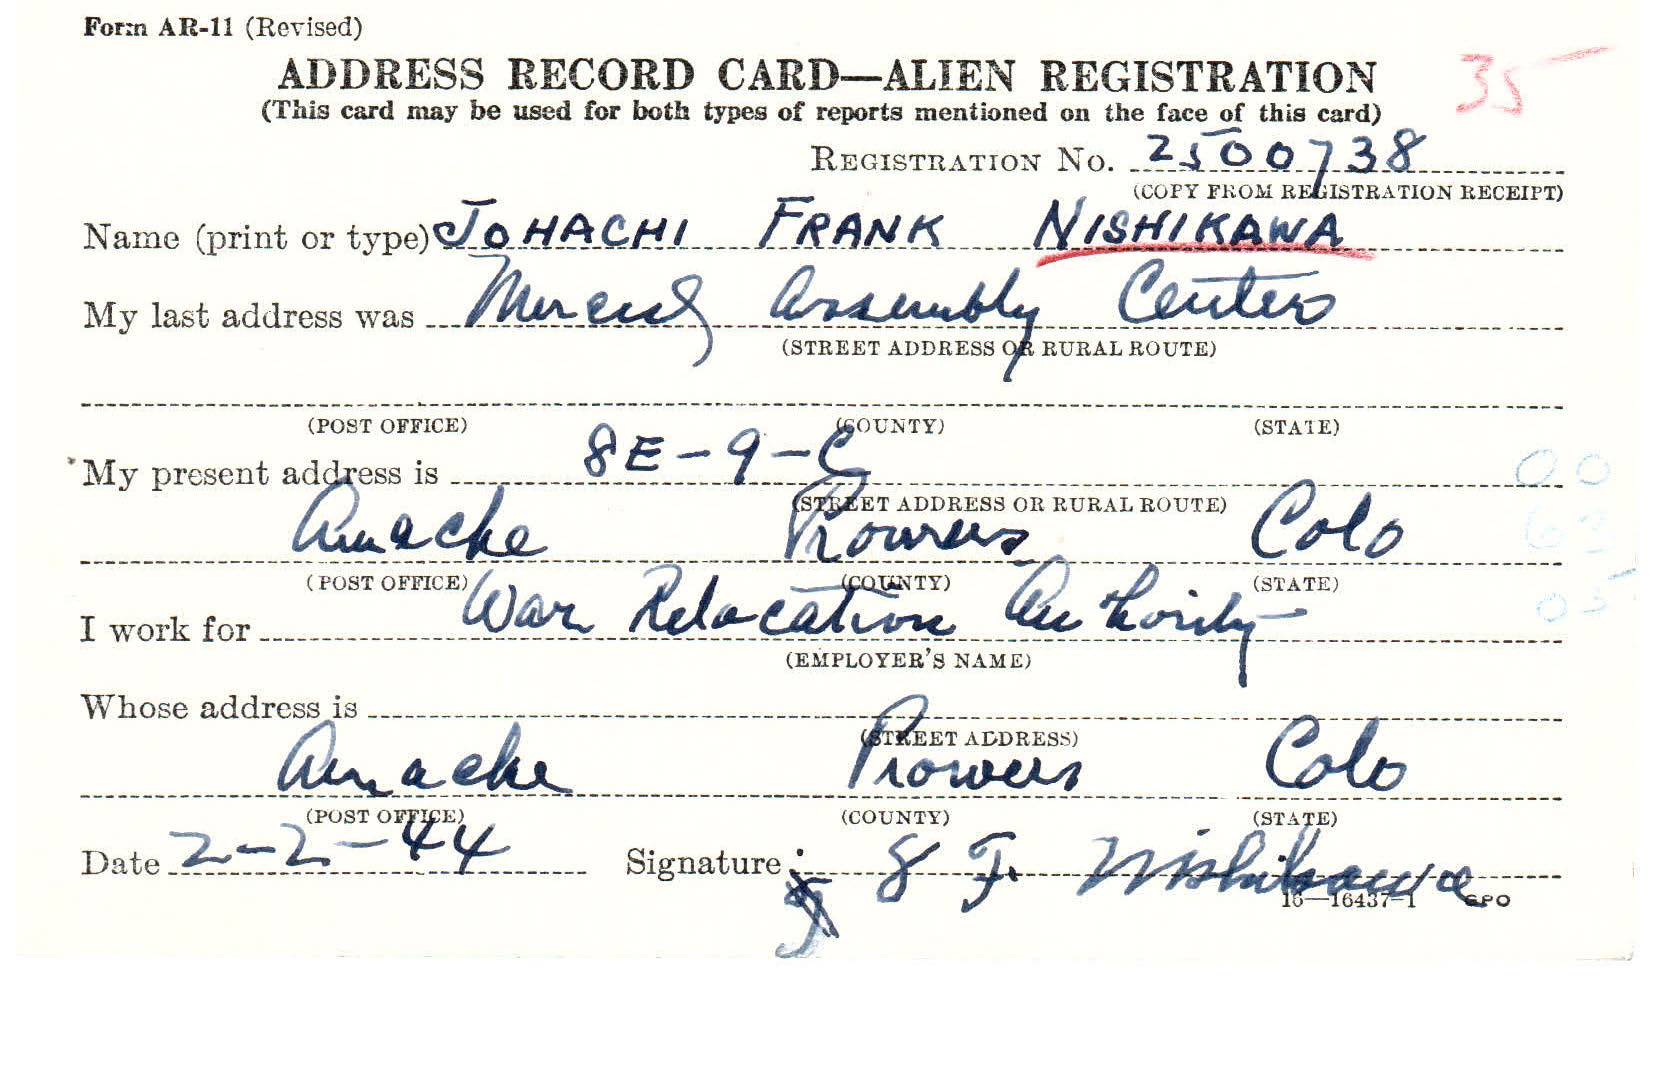 Form AR-11 (Revised)
ADDRESS RECORD CARD—ALIEN REGISTRATION
35
(This card may be used for both types of reports mentioned on the face of this card)
REGISTRATION No. 2500738
(COPY FROM REGISTRATION RECEIPT)
Name (print or type) JOHACHI FRANK NISHIKAWA
My last address was Merced Assembly Center
(STREET ADDRESS OR RURAL ROUTE)
(POST OFFICE) (COUNTY) (STATE)
My present address is 8E-9-C
(STREET ADDRESS OR RURAL ROUTE)
Amache Prowers Colo
(POST OFFICE) (COUNTY) (STATE)
I work for War Relocation Authority
(EMPLOYER'S NAME)
Whose address is
(STREET ADDRESS)
Amache Prowers Colo
(POST OFFICE) (COUNTY) (STATE)
Date 2-2-44 Signature J F. Nishikawa
16—16437-1 GPO